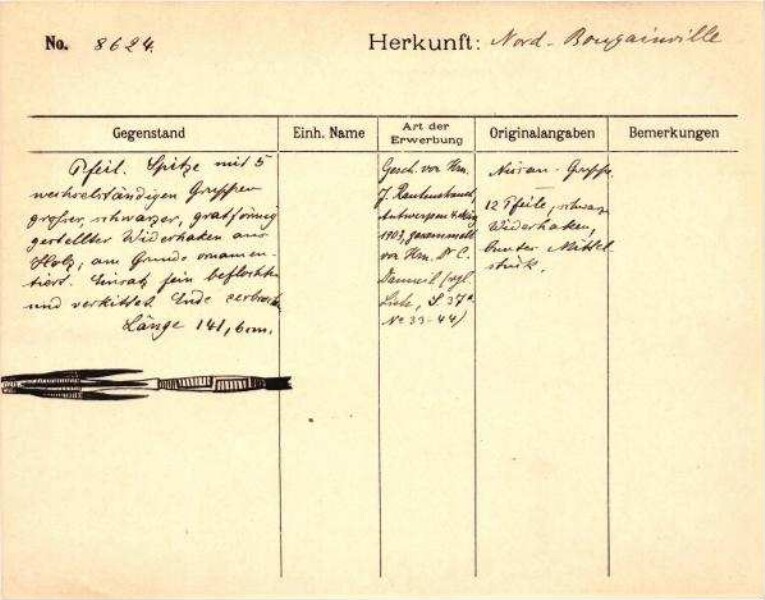 No. 8624.
Herkunft: Nord-Bougainville
Gegenstand
Einh. Name
Art der Erwerbung
Originalangaben
Bemerkungen
Pfeil. Spitze mit 5
wechselständigen Gruppen
großer, schwarzer, gratförmig
gestellter Widerhaken aus
Holz, am Grunde ornamen-
tiert. Einsatz fein beflochten
und verkittet. Ende zerbrochen
Länge 141,6 cm.
Gesch. von Hrn.
J. Rautenstrauch,
Antwerpen 4. März
1903, gesammelt
von Hrn. Dr C.
(vgl.
Liste, S 37a
No 33-44)
Nissan-Gruppe.
12 Pfeile, schwarze
Widerhaken,
bunter Mittel-
stück.